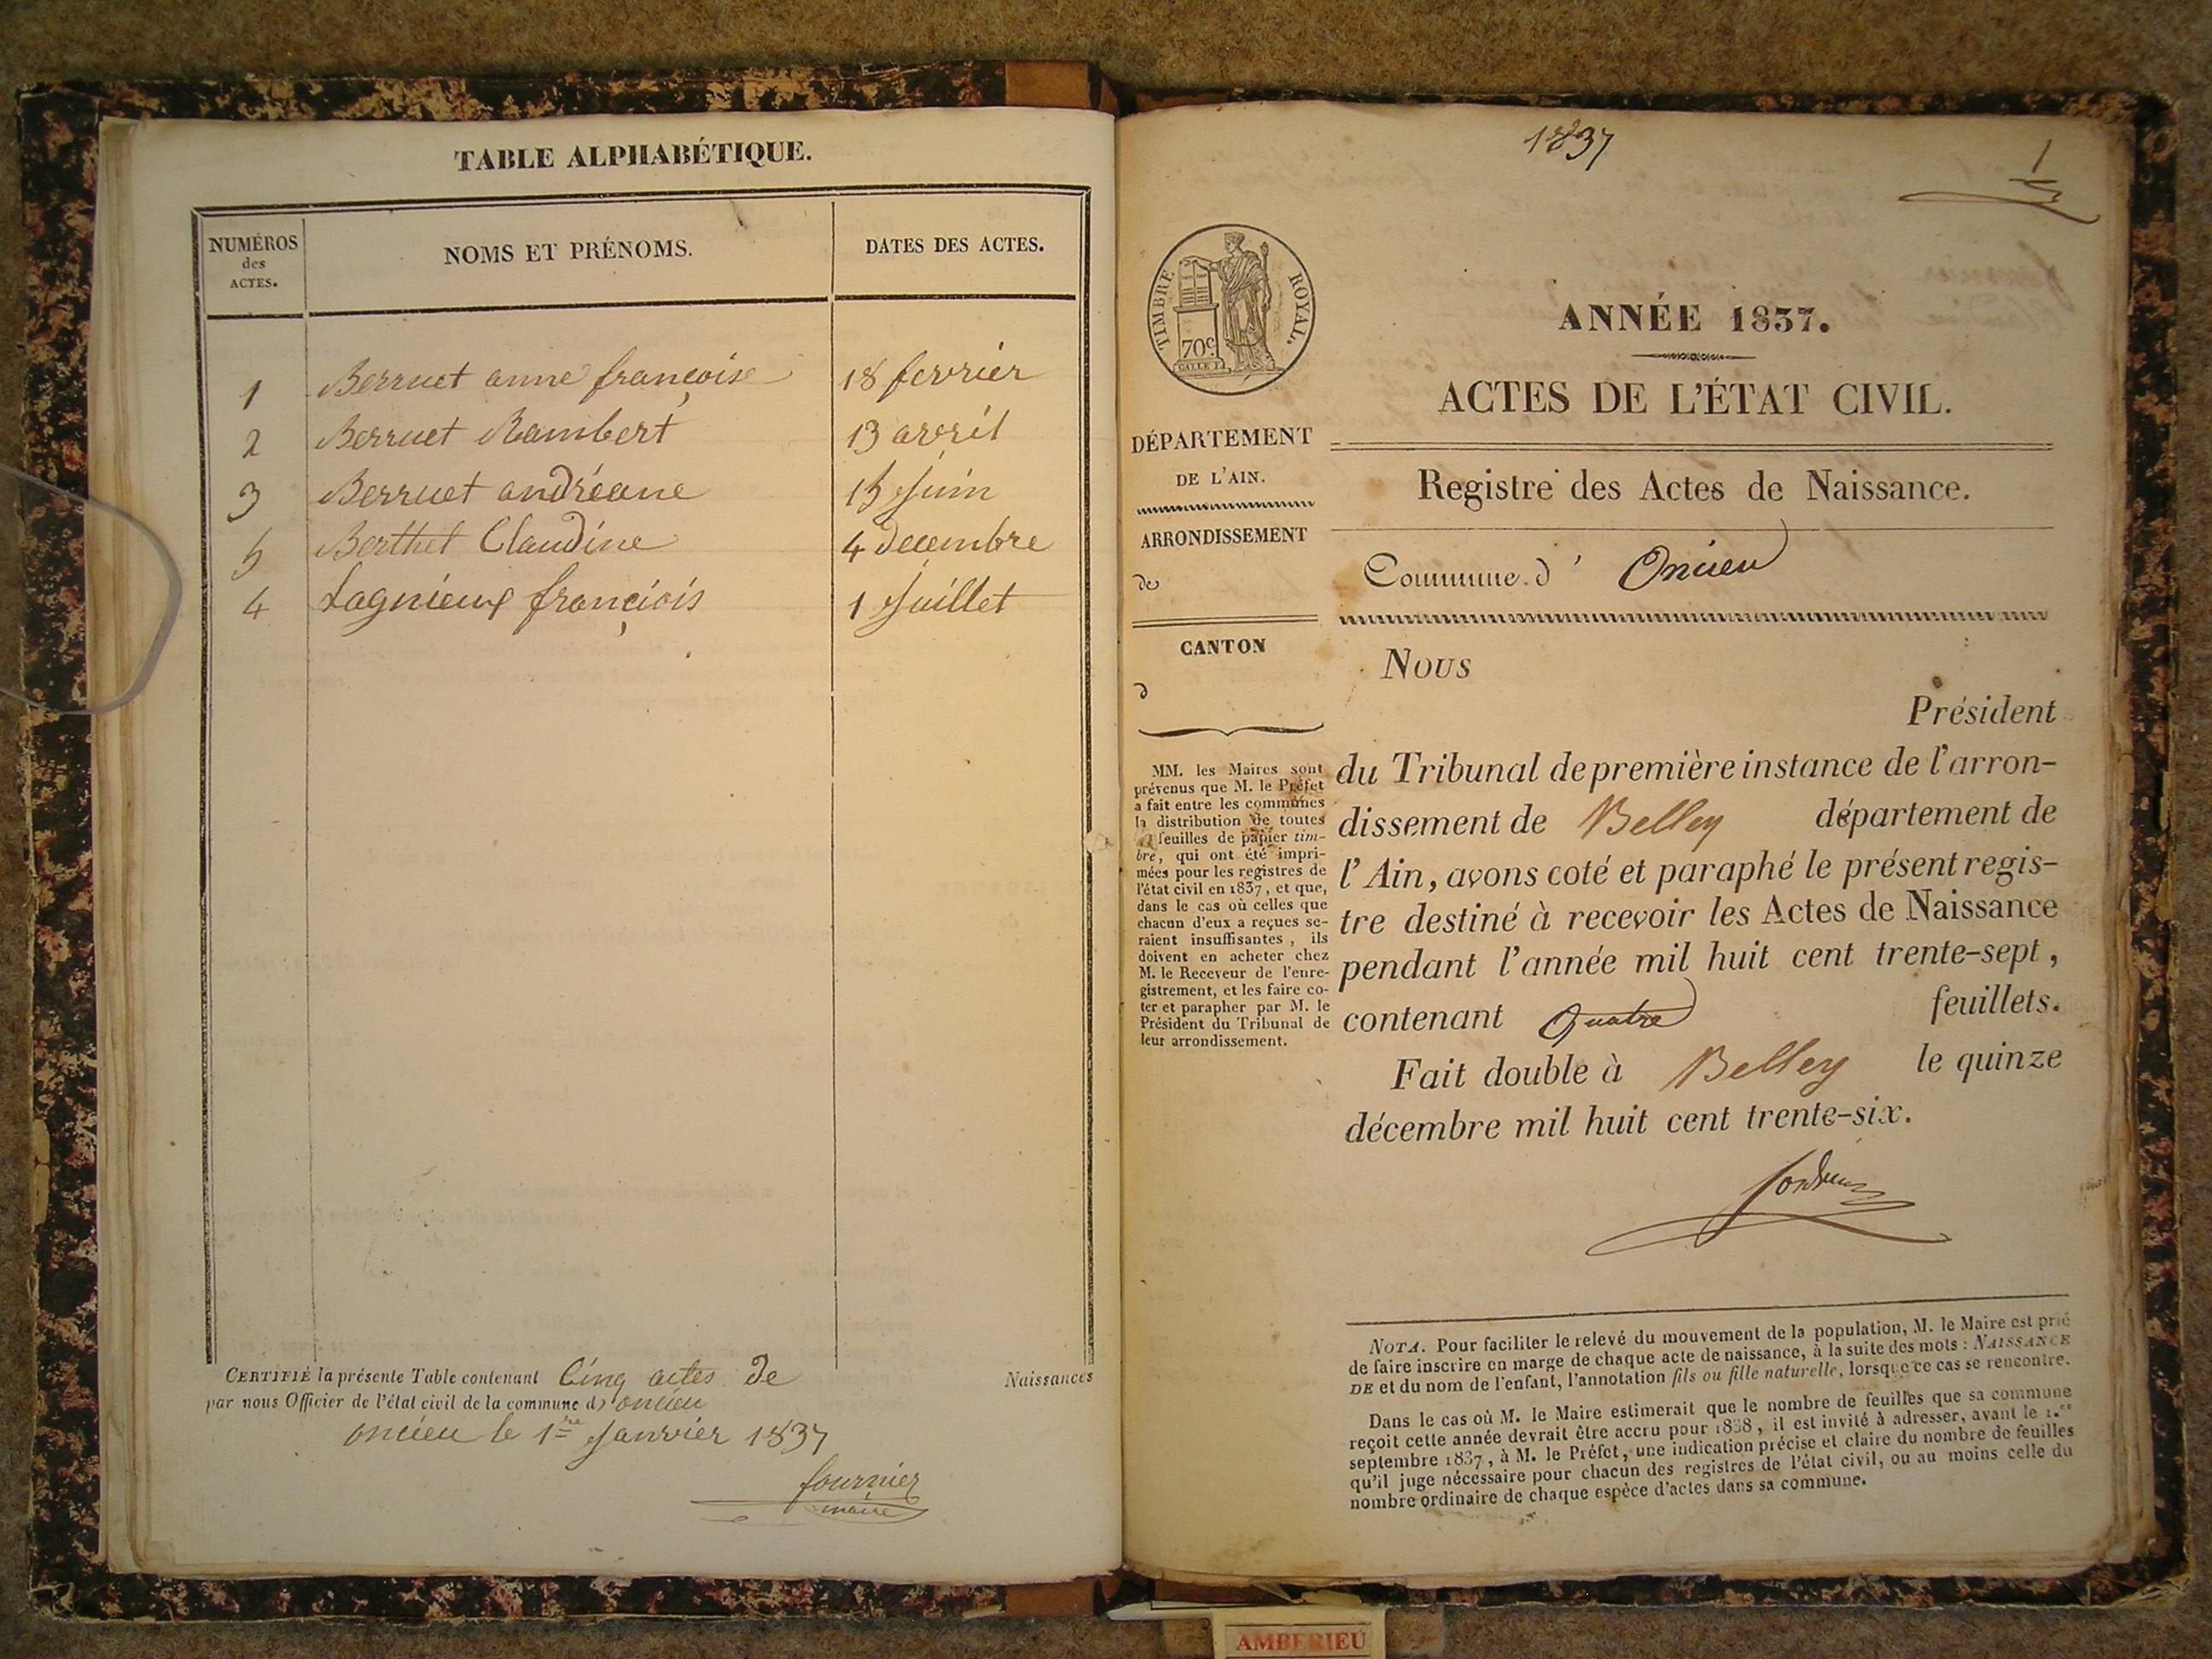 TABLE ALPHABÉTIQUE.
NUMÉROS
des
ACTES.
NOMS ET PRÉNOMS.
DATES DES ACTES.
1 Berruet anne françoise 18 fevrier
2 Berruet Rambert 13 avril
3 Berruet andréane 15 Juin
5 Berthet Claudine 4 decembre
4 Lagnieux françiois 1 Juillet
CERTIFIÉ la présente Table contenant Cinq actes de Naissances
par nous Officier de l'état civil de la commune d' oncieu
oncieu le 1re Janvier 1837
fournier
maire
1837
1
TIMBRE ROYAL.
70c.
ANNÉE 1837.
ACTES DE L'ÉTAT CIVIL.
DÉPARTEMENT
DE L'AIN.
ARRONDISSEMENT
de
CANTON
d
MM. les Maires sont
prévenus que M. le Préfet
a fait entre les communes
la distribution de toutes
les feuilles de papier tim-
bré, qui ont été impri-
mées pour les registres de
l'état civil en 1837, et que,
dans le cas où celles que
chacun d'eux a reçues se-
raient insuffisantes, ils
doivent en acheter chez
M. le Receveur de l'enre-
gistrement, et les faire co-
ter et parapher par M. le
Président du Tribunal de
leur arrondissement.
Registre des Actes de Naissance.
Commune d' Oncieu
Nous
Président
du Tribunal de première instance de l'arron-
dissement de Belley département de
l'Ain, avons coté et paraphé le présent regis-
tre destiné à recevoir les Actes de Naissance
pendant l'année mil huit cent trente-sept,
contenant Quatre feuillets.
Fait double à Belley le quinze
décembre mil huit cent trente-six.
NOTA. Pour faciliter le relevé du mouvement de la population, M. le Maire est prié
de faire inscrire en marge de chaque acte de naissance, à la suite des mots : NAISSANCE
DE et du nom de l'enfant, l'annotation fils ou fille naturelle, lorsque ce cas se rencontre.
Dans le cas où M. le Maire estimerait que le nombre de feuilles que sa commune
reçoit cette année devrait être accru pour 1838, il est invité à adresser, avant le 1.er
septembre 1837, à M. le Préfet, une indication précise et claire du nombre de feuilles
qu'il juge nécessaire pour chacun des registres de l'état civil, ou au moins celle du
nombre ordinaire de chaque espèce d'actes dans sa commune.
AMBERIEU